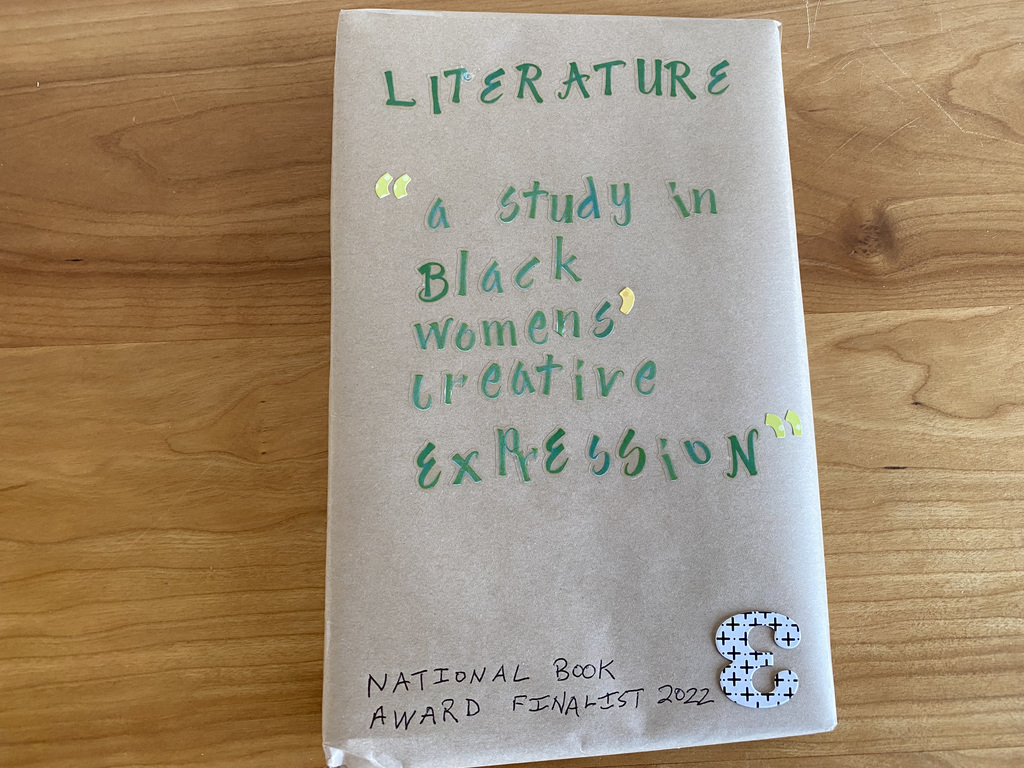 LITERATURE
“a study in
Black
womens’
creative
EXPRESSION”
NATIONAL BOOK
AWARD FINALIST 2022
E